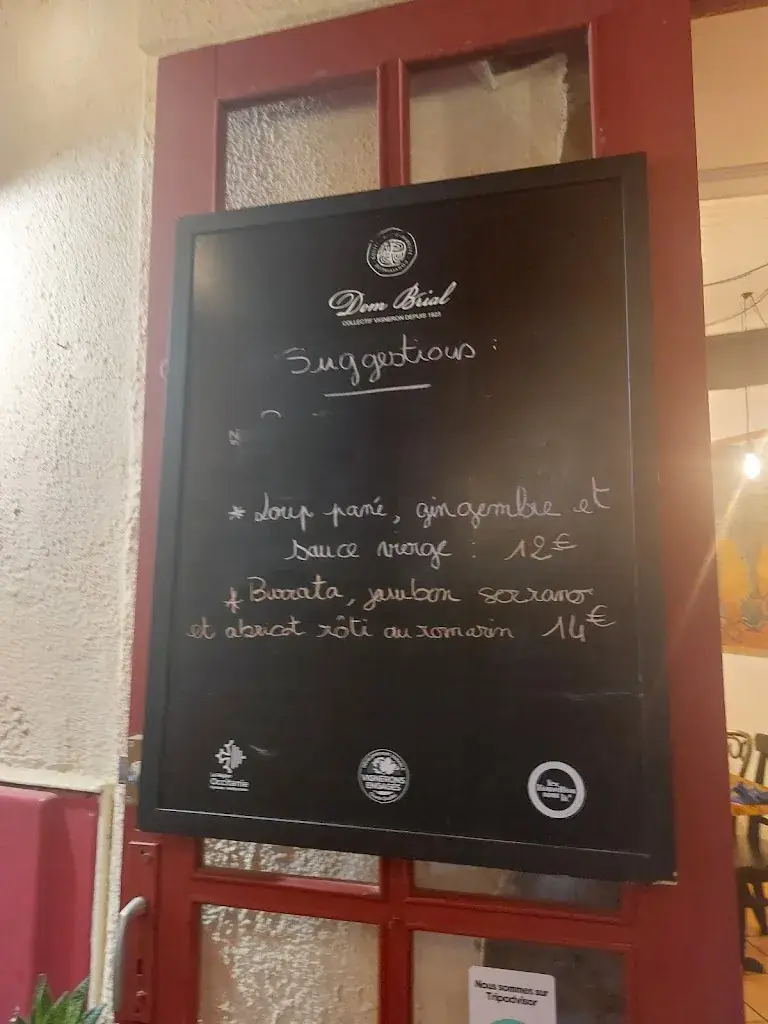 Dom Brial
COLLECTIF VIGNERON DEPUIS 1923
Suggestions :
* Loup pané, gingembre et
sauce vierge : 12€
* Burrata, jambon serrano
et abricot rôti au romarin 14€
La Région
Occitanie
VIGNERONS
ENGAGÉS
Nous sommes sur
Tripadvisor